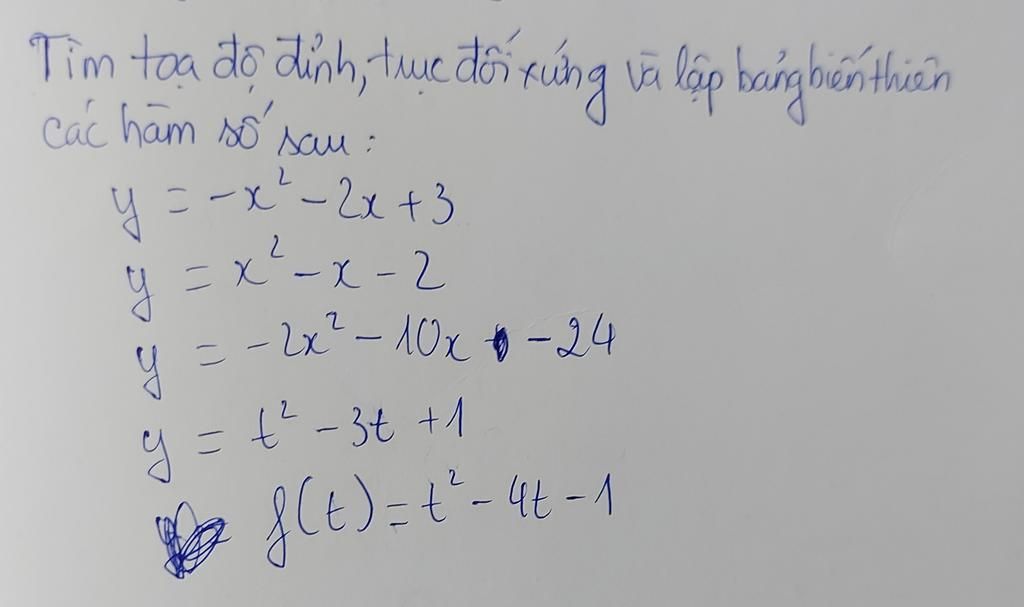 Tìm toạ độ đỉnh, trục đối xứng và lập bảng biến thiên
các hàm số sau:
y = -x² - 2x + 3
y = x² - x - 2
y = -2x² - 10x - 24
y = t² - 3t + 1
f(t) = t² - 4t - 1